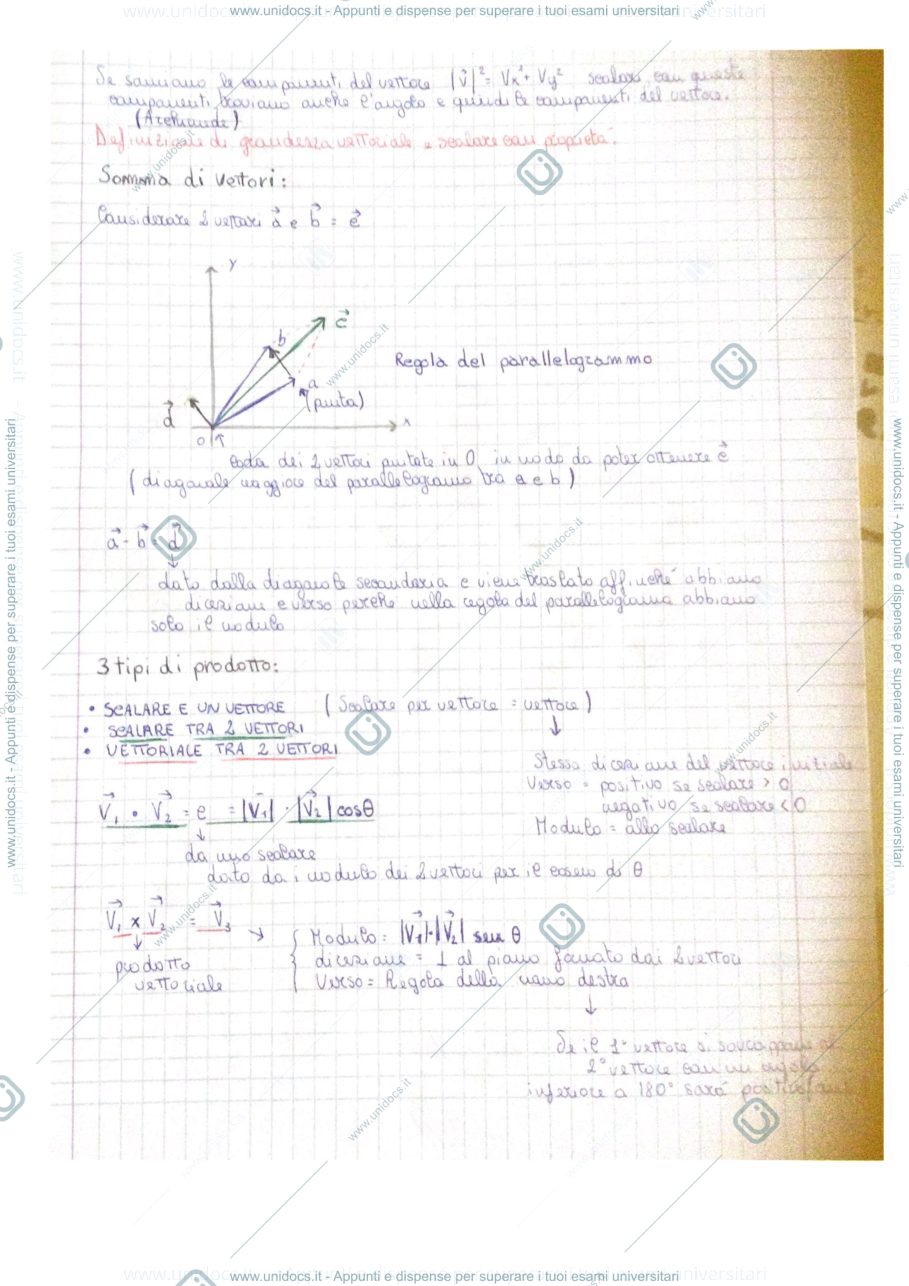 www.unidocs.it - Appunti e dispense per superare i tuoi esami universitari
Se sappiamo le componenti del vettore |v|² = Vx² + Vy² scalari con queste
componenti troviamo anche l'angolo e quindi le componenti del vettore.
Definizione di grandezza vettoriale e scalare con proprietà.
Somma di vettori:
Considerare 2 vettori a⃗ e b⃗ = c⃗
y
c⃗
b
Regola del parallelogrammo
a
(punta)
d⃗
x
O
coda dei 2 vettori puntate in O in modo da poter ottenere c⃗
(diagonale maggiore del parallelogramma tra a e b)
a⃗ - b⃗ = d⃗
dato dalla diagonale secondaria e viene traslato affinché abbiamo
direzione e verso perché nella regola del parallelogramma abbiamo
solo il modulo
3 tipi di prodotto:
• SCALARE E UN VETTORE (Scalare per vettore = vettore)
• SCALARE TRA 2 VETTORI
• VETTORIALE TRA 2 VETTORI
Stessa direzione del vettore iniziale
Verso = positivo se scalare > 0
negativo se scalare < 0
Modulo = allo scalare
V⃗₁ • V⃗₂ = c = |V⃗₁| · |V⃗₂| cosθ
da uno scalare
dato da i modulo dei 2 vettori per il coseno di θ
V⃗₁ x V⃗₂ = V⃗₃
prodotto
vettoriale
Modulo = |V⃗₁|·|V⃗₂| sen θ
direzione = ⊥ al piano formato dai 2 vettori
Verso = Regola della mano destra
Se il 1° vettore si sovrappone al
2° vettore con un angolo
inferiore a 180° sarà
www.unidocs.it - Appunti e dispense per superare i tuoi esami universitari